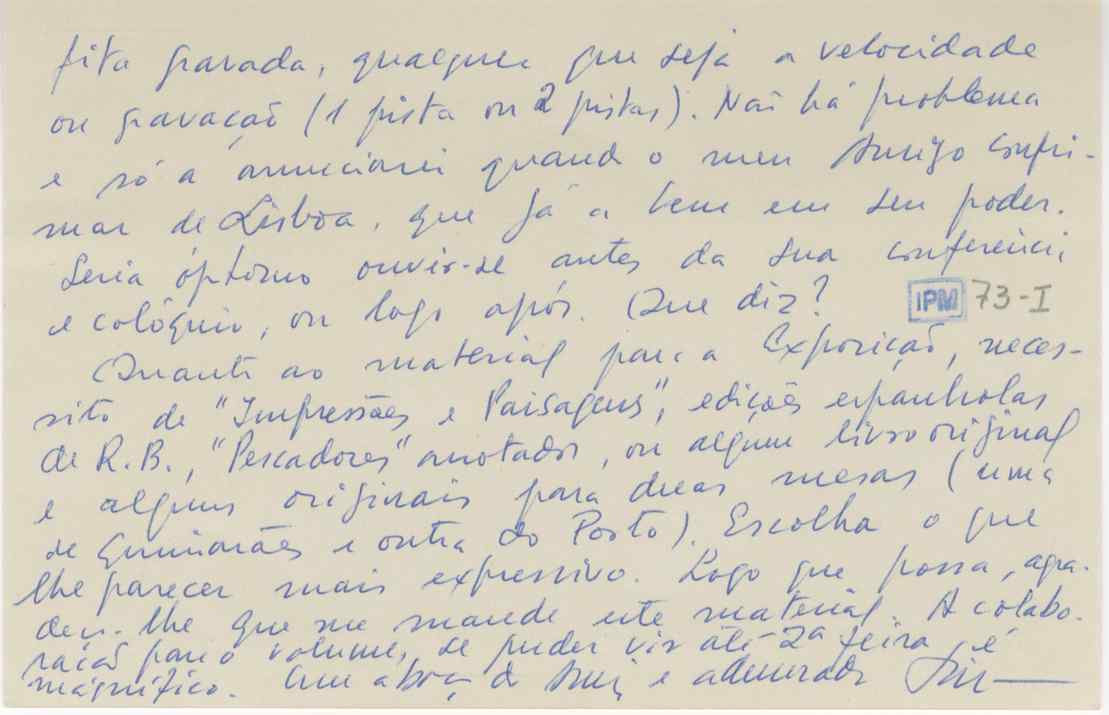 fita gravada, qualquer que seja a velocidade
ou gravação (1 pista ou 2 pistas). Não há problema
e só a anunciarei quando o meu Amigo confir-
mar de Lisboa, que já a tem em seu poder.
Seria óptimo ouvir-se antes da sua conferência
e colóquio, ou logo após. Que diz?
IPM 73-I
Quanto ao material para a Exposição, neces-
sito de "Impressões e Paisagens", edições espanholas
de R.B., "Pescadores" anotados, ou algum livro original
e alguns originais para duas mesas (uma
de Guimarães e outra do Porto). Escolha o que
lhe parecer mais expressivo. Logo que possa, agra-
deço-lhe que me mande este material. A colabo-
ração para o volume, se puder vir até 2ª feira, é
magnífico. Um abraço do Amigo e admirador